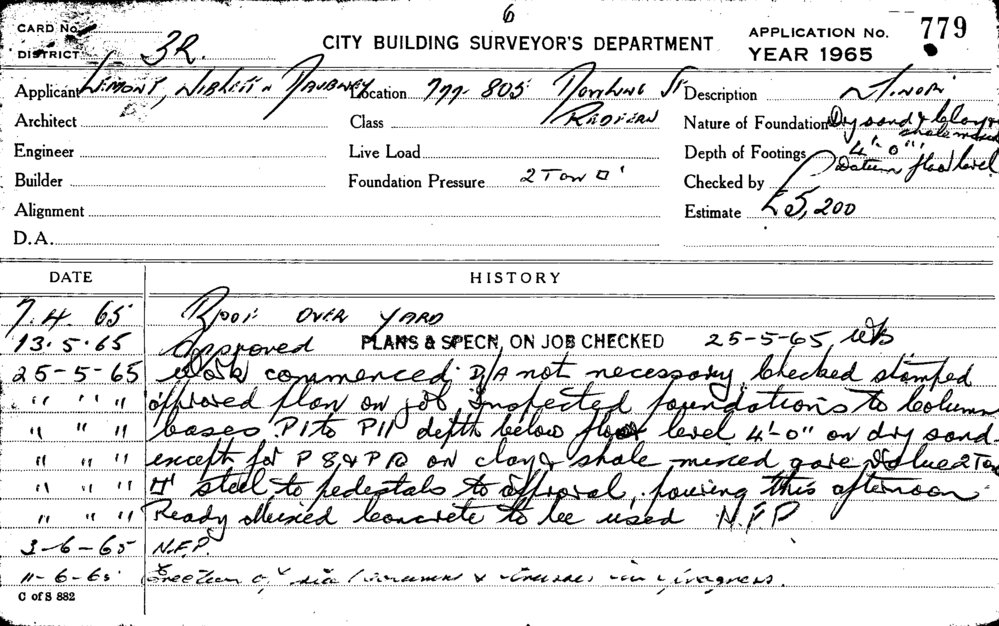 6
CARD No.
DISTRICT 3R.
CITY BUILDING SURVEYOR'S DEPARTMENT
APPLICATION No. 779
YEAR 1965
Applicant Lemont, Niblett & Daubney
Location 799-805
Redfern
Description Minor
Architect
Class
Nature of Foundation Dry sand & Clay &
shale mixed
Engineer
Live Load
Depth of Footings 4'-0"
Datum floor level
Builder
Foundation Pressure 2 Ton □'
Checked by
Alignment
Estimate £5,200
D.A.
DATE HISTORY
7.4.65 Roof OVER YARD
13.5.65 Approved PLANS & SPECN, ON JOB CHECKED 25-5-65,
25-5-65 Work commenced D/A not necessary, Checked stamped
" " " approved plan on job Inspected foundations to Column
" " " bases P1 to P11 depth below floor level 4'-0" on dry sand.
" " " except for P8 & on clay & shale mixed gave value 2 Ton
" " " □' steel to pedestals to approval, pouring this afternoon
" " " Ready Mixed Concrete to be used N.F.P.
3-6-65 N.F.P.
11-6-65 Erection of & trusses in progress.
C of S 882